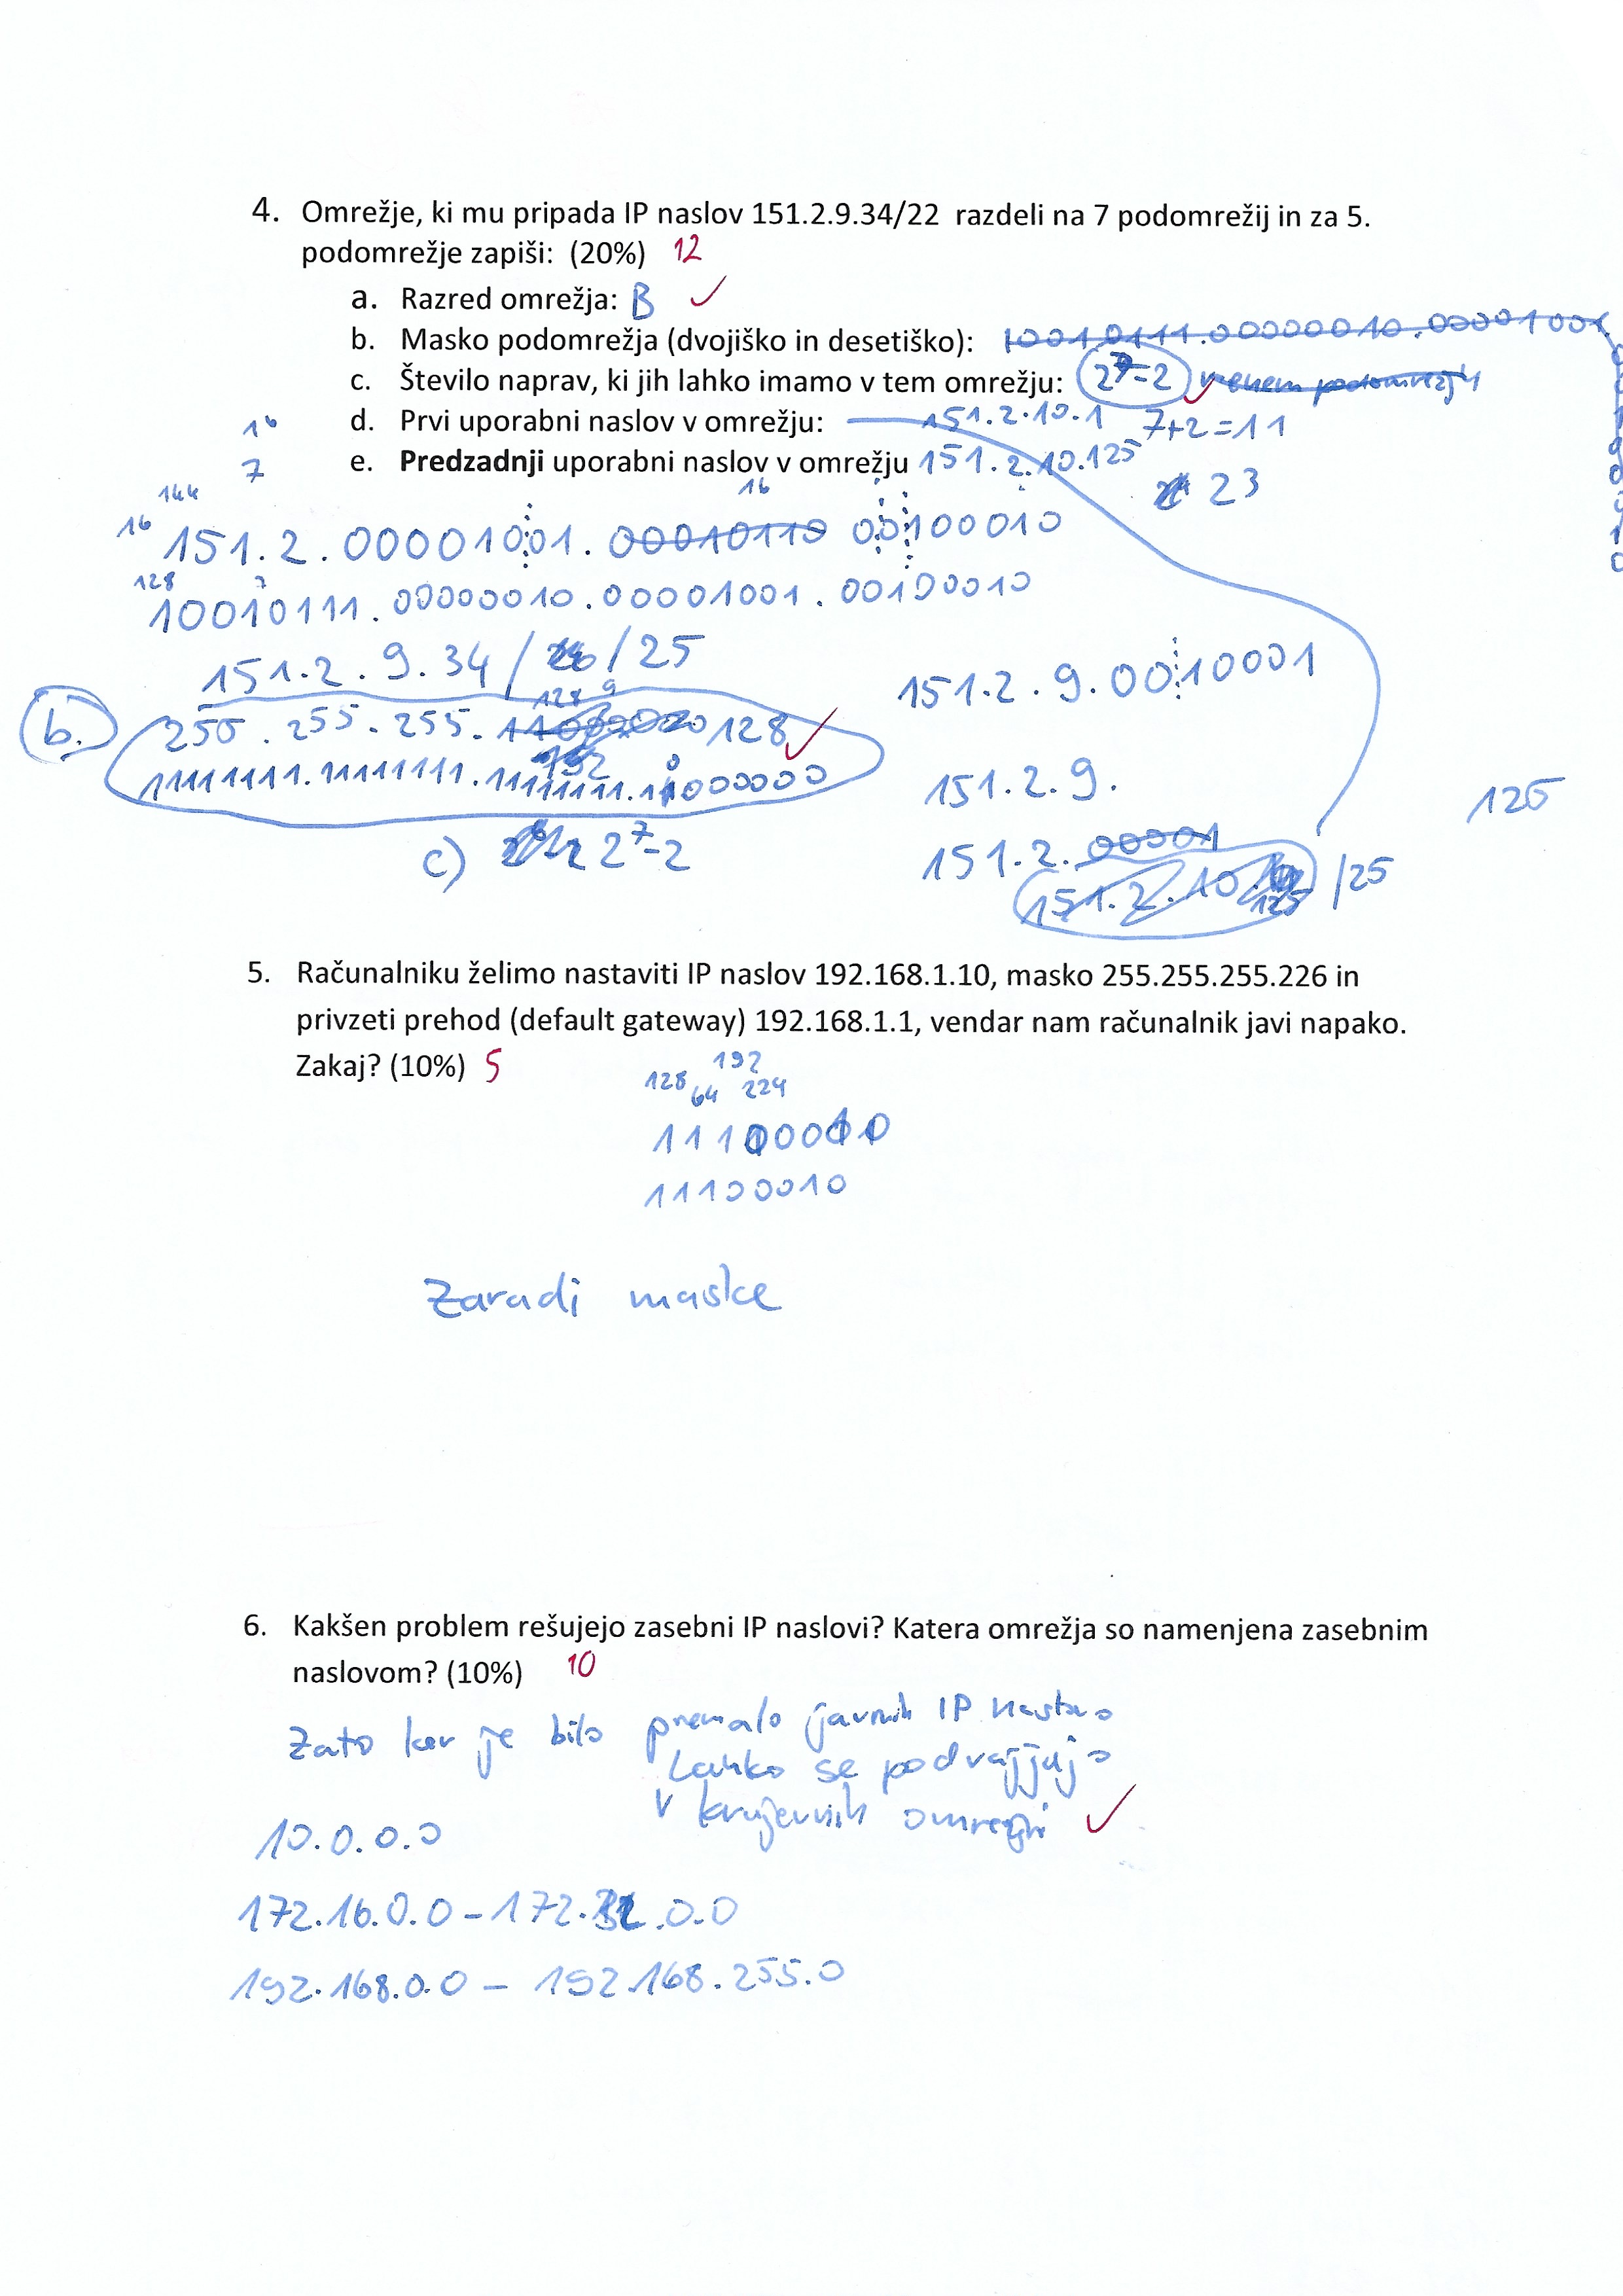 4. Omrežje, ki mu pripada IP naslov 151.2.9.34/22 razdeli na 7 podomrežij in za 5.
podomrežje zapiši: (20%) 12
a. Razred omrežja: B ✓
b. Masko podomrežja (dvojiško in desetiško): 10010111.00000010.00001001
c. Število naprav, ki jih lahko imamo v tem omrežju: 2⁷-2 ✓ v enem podomrežju
d. Prvi uporabni naslov v omrežju: 151.2.10.1 7+2=11
e. Predzadnji uporabni naslov v omrežju 151.2.10.125
16
7
23
144
16
16 151.2.00001001.00010110 00100010
128
10010111.00000010.00001001.00100010
151.2.9.34/ /25
151.2.9.0010001
128
b. 255.255.255. 128 ✓
192
11111111.11111111.11111111.10000000
151.2.9.
125
c) 2⁷-2
151.2.00001
151.2.10.125 /25
5. Računalniku želimo nastaviti IP naslov 192.168.1.10, masko 255.255.255.226 in
privzeti prehod (default gateway) 192.168.1.1, vendar nam računalnik javi napako.
Zakaj? (10%) 5
192
128 64 224
11100010
Zaradi maske
6. Kakšen problem rešujejo zasebni IP naslovi? Katera omrežja so namenjena zasebnim
naslovom? (10%) 10
Zato ker je bilo premalo javnih IP naslovo
Lahko se podvajjujo
v krajevnih omrežji ✓
10.0.0.0
172.16.0.0 - 172.32.0.0
192.168.0.0 - 192.168.255.0